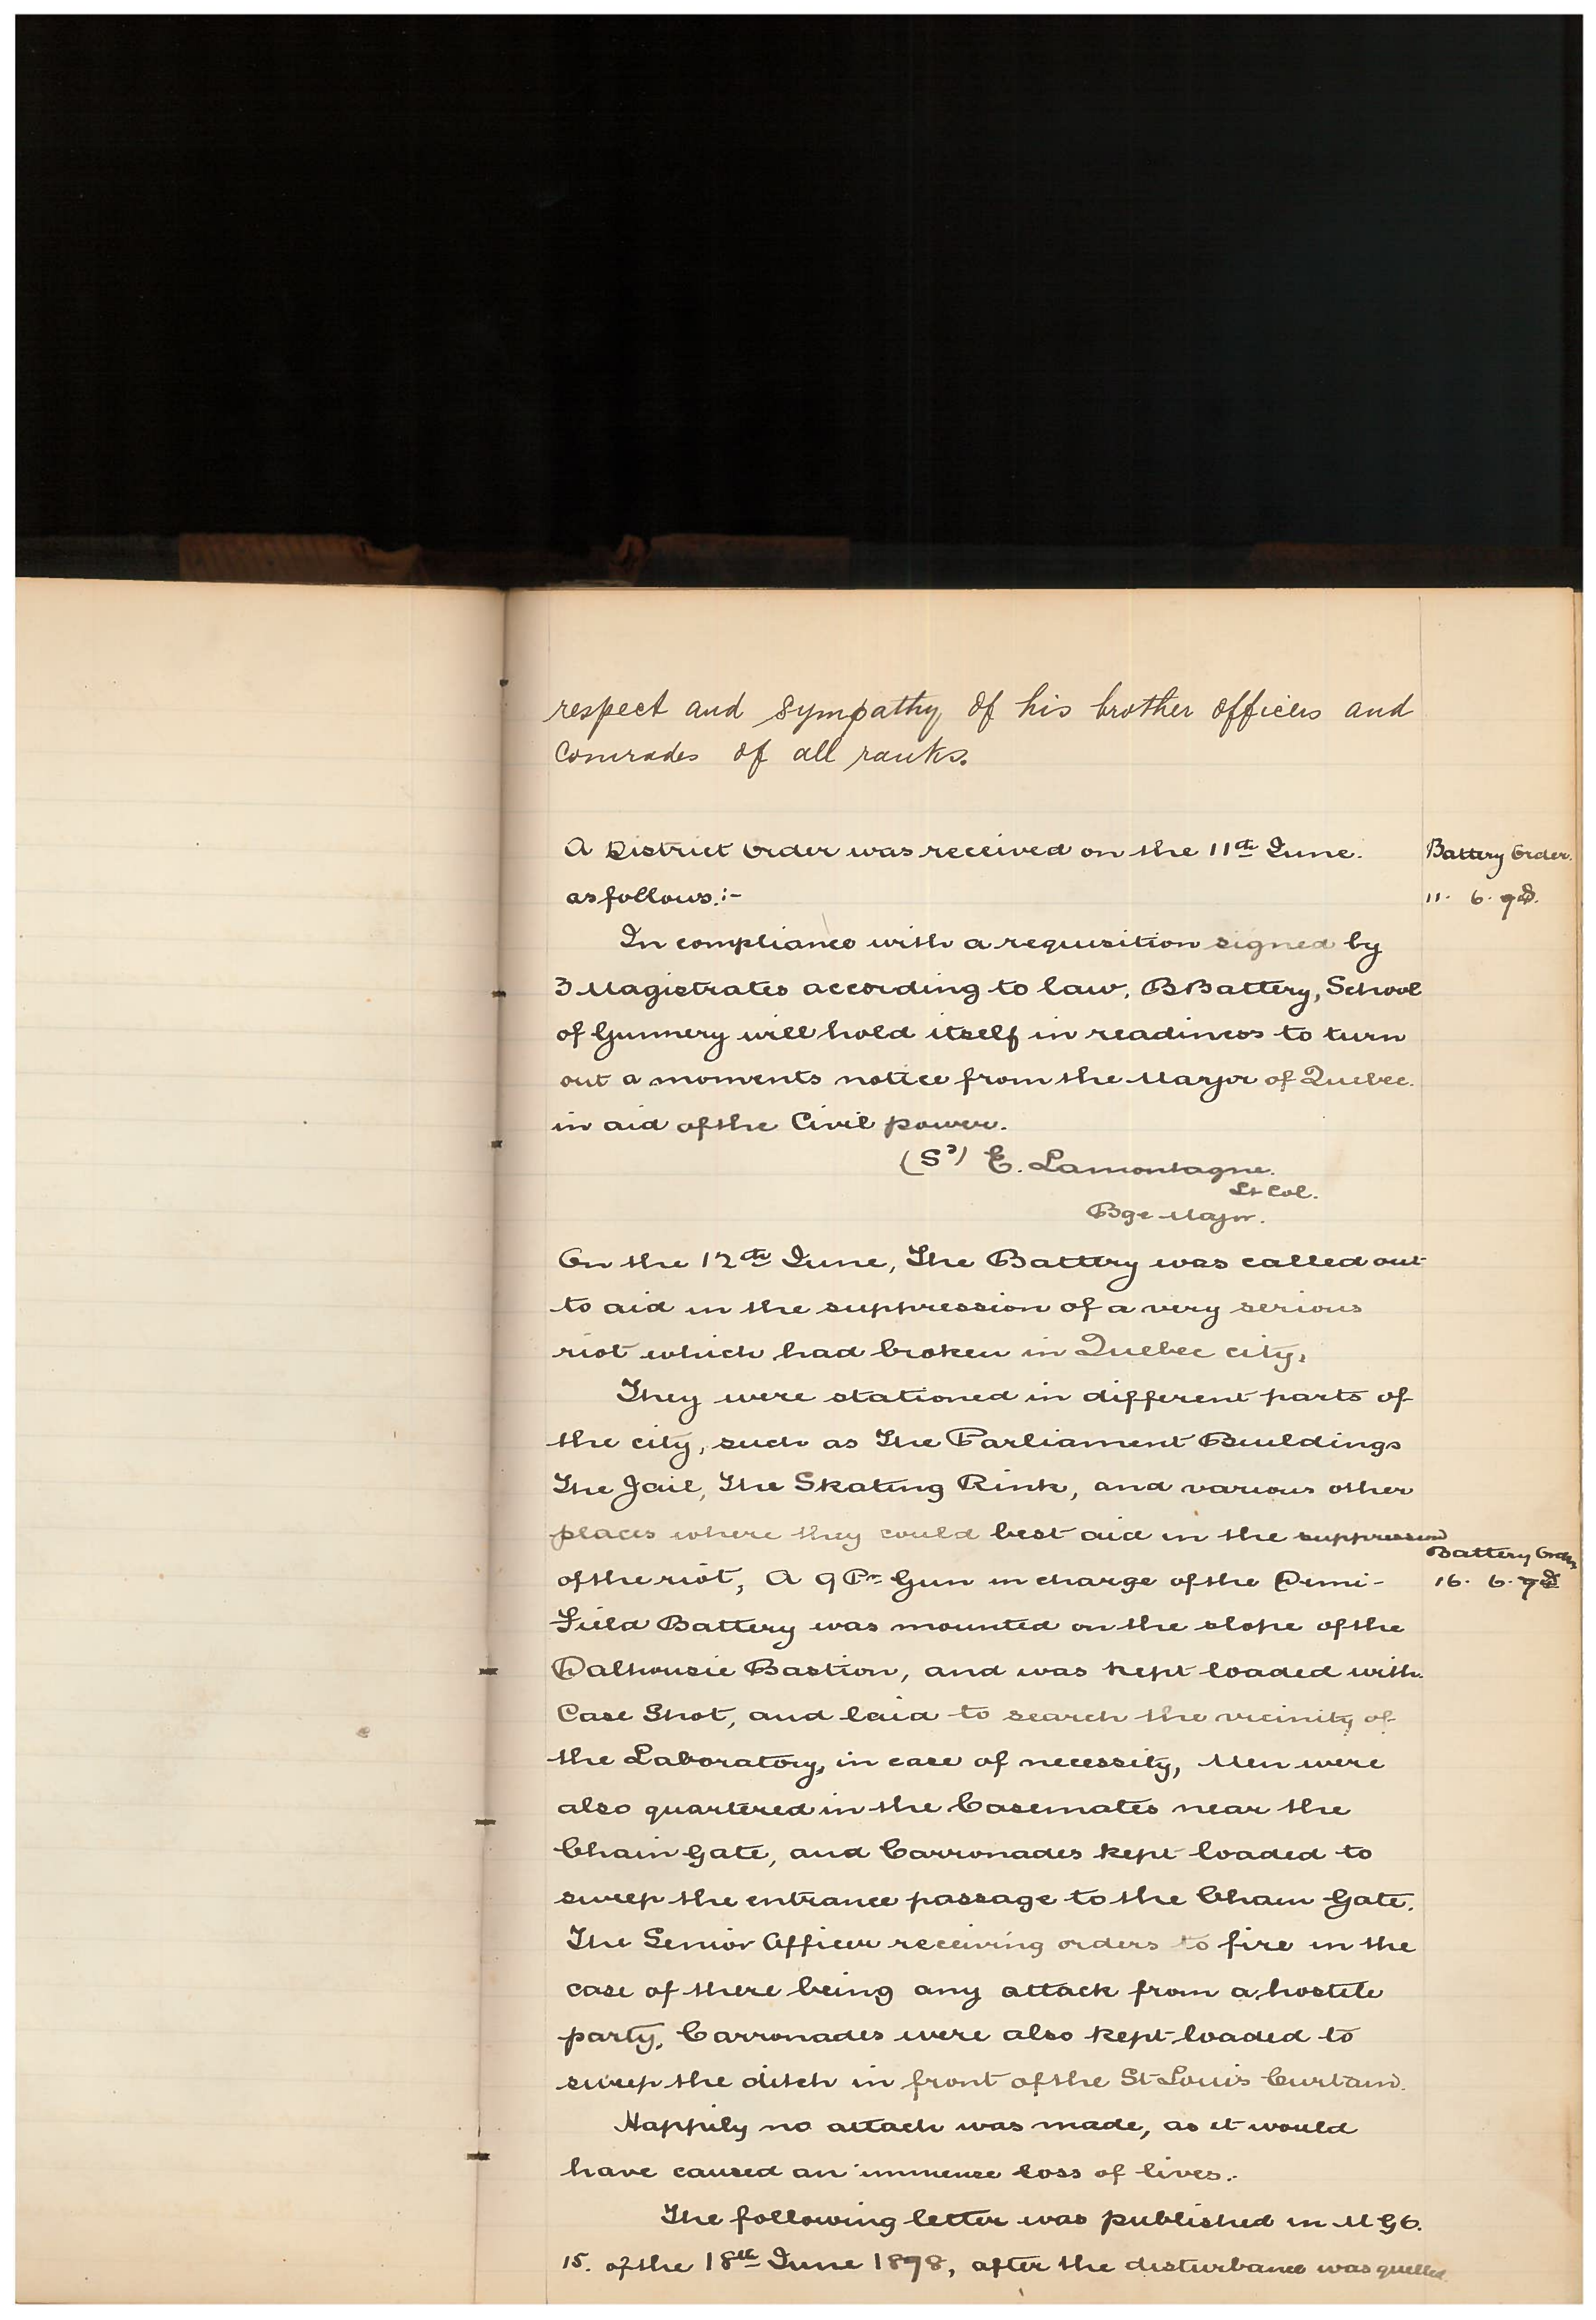 respect and sympathy of his brother officers and
Comrades of all ranks.
A District Order was received on the 11th June.
Battery Order.
as follows:-
11. 6. 78.
In compliance with a requisition signed by
3 Magistrates according to law, B Battery, School
of Gunnery will hold itself in readiness to turn
out a moments notice from the Mayor of Quebec.
in aid of the Civil power.
(Sd) E. Lamontagne.
Lt Col.
Bge Major.
On the 12th June, The Battery was called out
to aid in the suppression of a very serious
riot which had broken in Quebec city,
They were stationed in different parts of
the city, such as The Parliament Buildings
The Jail, The Skating Rink, and various other
places where they could best aid in the suppression
Battery Order
of the riot, A 9 Pr Gun in charge of the Demi-
16. 6. 78
Field Battery was mounted on the slope of the
Dalhousie Bastion, and was kept loaded with
Case Shot, and laid to search the vicinity of
the Laboratory, in case of necessity, Men were
also quartered in the Casemates near the
Chain Gate, and Carronades kept loaded to
sweep the entrance passage to the Chain Gate.
The Senior Officer receiving orders to fire in the
case of there being any attack from a hostile
party, Carronades were also kept loaded to
sweep the ditch in front of the St Louis Curtain.
Happily no attack was made, as it would
have caused an immense loss of lives.
The following letter was published in M G O.
15. of the 18th June 1878, after the disturbance was quelled